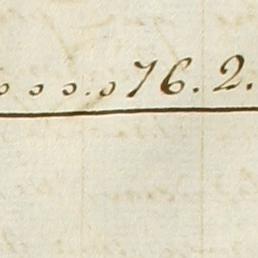 o o o . o 76. 2.